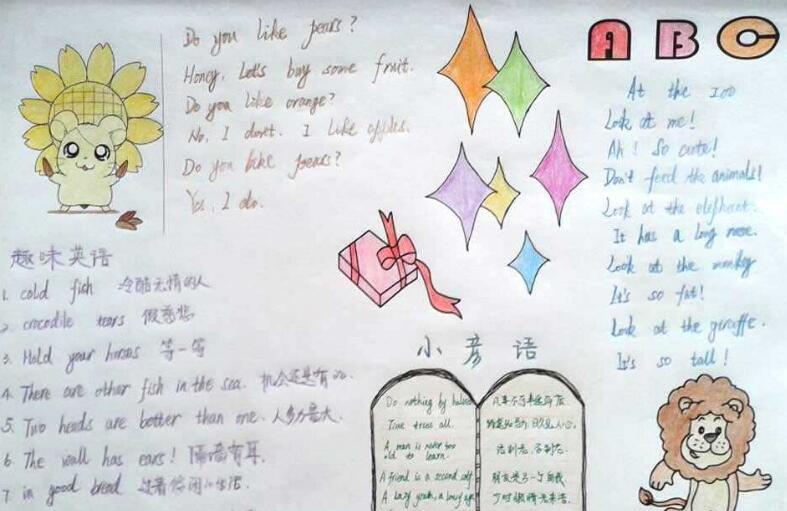 Do you like pears?
Honey, Let's buy some fruit.
Do you like orange?
No, I don't. I like apples.
Do you like pears?
Yes, I do.
趣味英语
1. cold fish 冷酷无情的人
2. crocodile tears 假慈悲
3. Hold your horses 等一等
4. There are other fish in the sea. 机会还是有的.
5. Two heads are better than one. 人多力量大.
6. The wall has ears! 隔墙有耳.
7. in good bread
ABC
At the zoo
Look at me!
Ah! So cute!
Don't feed the animals!
Look at the elephant.
It has a long nose.
Look at the monkey
It's so fat!
Look at the giraffe.
It's so tall!
小彦语
Do nothing by halves
Time tries all.
A man is never too
old to learn.
A friend is a second self
A lazy youth, a lousy age
凡事不可半途而废
日久见人心.
活到老, 学到老.
朋友是另一个自我